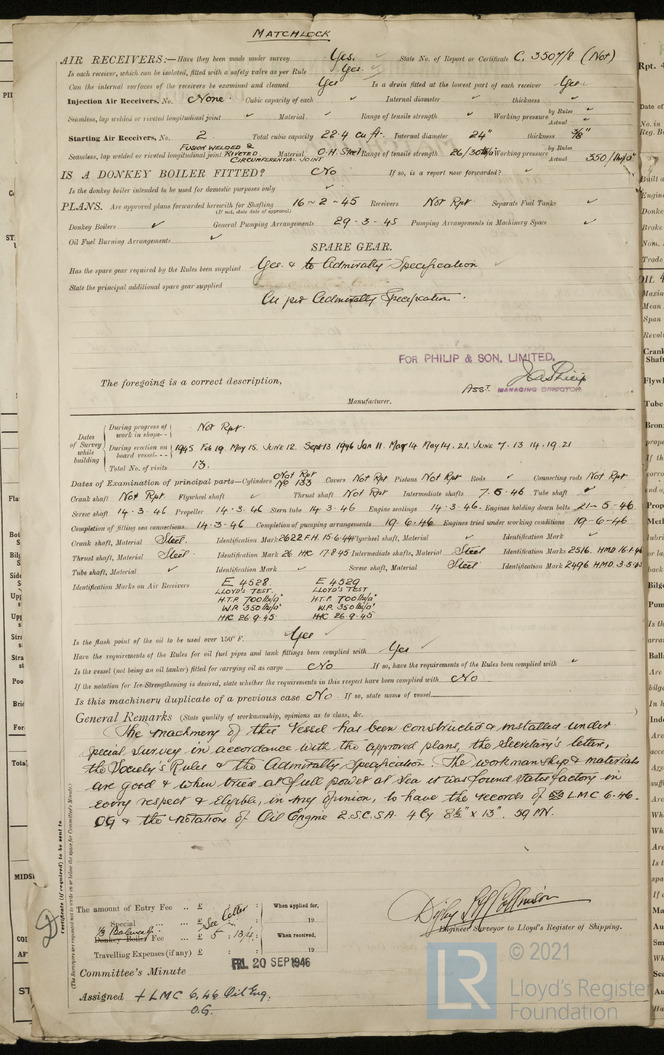 MATCHLOCK
AIR RECEIVERS:—Have they been made under survey Yes. State No. of Report or Certificate C. 3507/8 (Not)
Is each receiver, which can be isolated, fitted with a safety valve as per Rule Yes.
Can the internal surfaces of the receivers be examined and cleaned Yes Is a drain fitted at the lowest part of each receiver Yes.
Injection Air Receivers, No. None. Cubic capacity of each ✓ Internal diameter ✓ thickness ✓
Seamless, lap welded or riveted longitudinal joint ✓ Material ✓ Range of tensile strength ✓ Working pressure by Rules ✓ Actual ✓
Starting Air Receivers, No. 2 Total cubic capacity 22.4 cu ft. Internal diameter 24" thickness 3/8"
Seamless, lap welded or riveted longitudinal joint FUSION WELDED & RIVETED CIRCUMFERENTIAL JOINT Material O.H. Steel Range of tensile strength 26/30 Working pressure by Rules Actual 350 lbs/□"
IS A DONKEY BOILER FITTED? No If so, is a report now forwarded? ✓
Is the donkey boiler intended to be used for domestic purposes only ✓
PLANS. Are approved plans forwarded herewith for Shafting 16-2-45 Receivers Not Rpt Separate Fuel Tanks ✓
(If not, state date of approval)
Donkey Boilers ✓ General Pumping Arrangements 29.3.45 Pumping Arrangements in Machinery Space ✓
Oil Fuel Burning Arrangements ✓
SPARE GEAR.
Has the spare gear required by the Rules been supplied Yes & to Admiralty Specification
State the principal additional spare gear supplied
As per Admiralty Specification.
FOR PHILIP & SON, LIMITED.
The foregoing is a correct description,
ASST. MANAGING DIRECTOR
Manufacturer.
Dates of Survey while building
During progress of work in shops-- Not Rpt.
During erection on board vessel--- 1945 Feb 19. May 15. June 12. Sept 13 1946 Jan 11. May 14. 21. June 7. 13. 14. 19. 21
Total No. of visits 13.
Dates of Examination of principal parts—Cylinders Not Rpt No 133 Covers Not Rpt Pistons Not Rpt Rods ✓ Connecting rods Not Rpt
Crank shaft Not Rpt Flywheel shaft ✓ Thrust shaft Not Rpt Intermediate shafts 7.5.46 Tube shaft ✓
Screw shaft 14.3.46 Propeller 14.3.46 Stern tube 14.3.46 Engine seatings 14.3.46. Engines holding down bolts 21-5-46
Completion of fitting sea connections 14.3.46 Completion of pumping arrangements 19.6.46 Engines tried under working conditions 19-6-46
Crank shaft, Material Steel. Identification Mark 2622 F.H. 15.6.44 Flywheel shaft, Material ✓ Identification Mark ✓
Thrust shaft, Material Steel Identification Mark 26 HC 17.8.45 Intermediate shafts, Material Steel Identification Marks 2516. HMD. 16.1.46
Tube shaft, Material ✓ Identification Mark ✓ Screw shaft, Material Steel Identification Mark 2496 HMD. 3.5.45
Identification Marks on Air Receivers E 4528 E 4529
LLOYD'S TEST. LLOYD'S TEST.
H.T.P. 700 lb/□" H.T.P. 700 lb/□"
W.P. 350 lb/□" W.P. 350 lb/□"
HC 26.9.45 HC 26.9.45
Is the flash point of the oil to be used over 150° F. Yes
Have the requirements of the Rules for oil fuel pipes and tank fittings been complied with Yes ✓
Is the vessel (not being an oil tanker) fitted for carrying oil as cargo No If so, have the requirements of the Rules been complied with ✓
If the notation for Ice Strengthening is desired, state whether the requirements in this respect have been complied with No
Is this machinery duplicate of a previous case No. If so, state name of vessel
General Remarks (State quality of workmanship, opinions as to class, &c.)
The machinery of this Vessel has been constructed & installed under
special survey in accordance with the approved plans, the Secretary's letters,
the Society's Rules & the Admiralty Specification. The workmanship & materials
are good & when tried at full power at sea it was found satisfactory in
every respect & eligible, in my opinion, to have the records of LMC 6-46.
OG & the notation of Oil Engine 2.S.C.S.A. 4 Cy 8½" x 13". 59 MN.
The amount of Entry Fee .. £ : : When applied for,
Special .. £ See Letter 19
Donkey Boiler Fee .. £ 5 : 13/4 : When received,
Travelling Expenses (if any) £ : : 19
Engineer Surveyor to Lloyd's Register of Shipping.
FRI. 20 SEP 1946
Committee's Minute
Assigned + LMC 6.46 Oil Eng.
O.G.
© 2021
LR
Lloyd's Register
Foundation